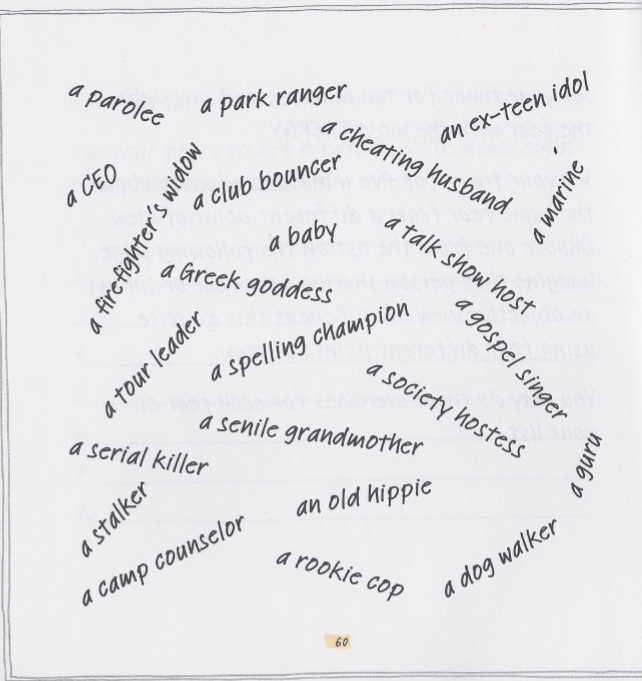 a parolee
a park ranger
an ex-teen idol
a cheating husband
a CEO
a firefighter's widow
a club bouncer
a marine
a baby
a talk show host
a Greek goddess
a gospel singer
a tour leader
a spelling champion
a society hostess
a senile grandmother
a serial killer
a guru
a stalker
an old hippie
a camp counselor
a rookie cop
a dog walker
60